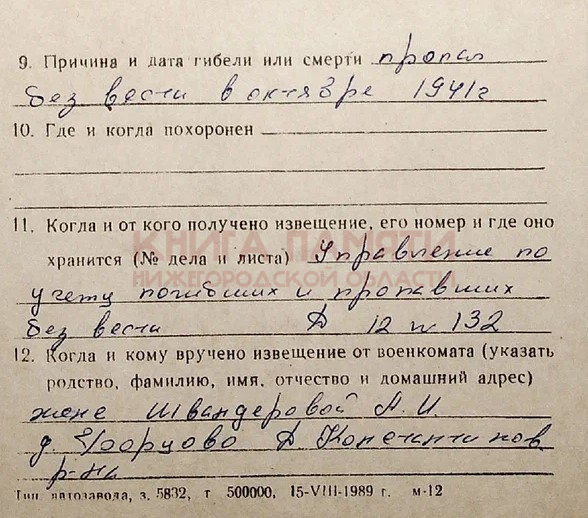 9. Причина и дата гибели или смерти пропал
без вести в октябре 1941 г
10. Где и когда похоронен
11. Когда и от кого получено извещение, его номер и где оно
КНИГА ПАМЯТИ
хранится (№ дела и листа) Управление по
НИЖЕГОРОДСКОЙ ОБЛАСТИ
учету погибших и пропавших
без вести Д 12 л 132
12. Когда и кому вручено извещение от военкомата (указать
родство, фамилию, имя, отчество и домашний адрес)
жене Швандеровой А. И.
д. Д Константинов
р-на
Тип. автозавода, з. 5832, т 500000, 15-VIII-1989 г. м-12